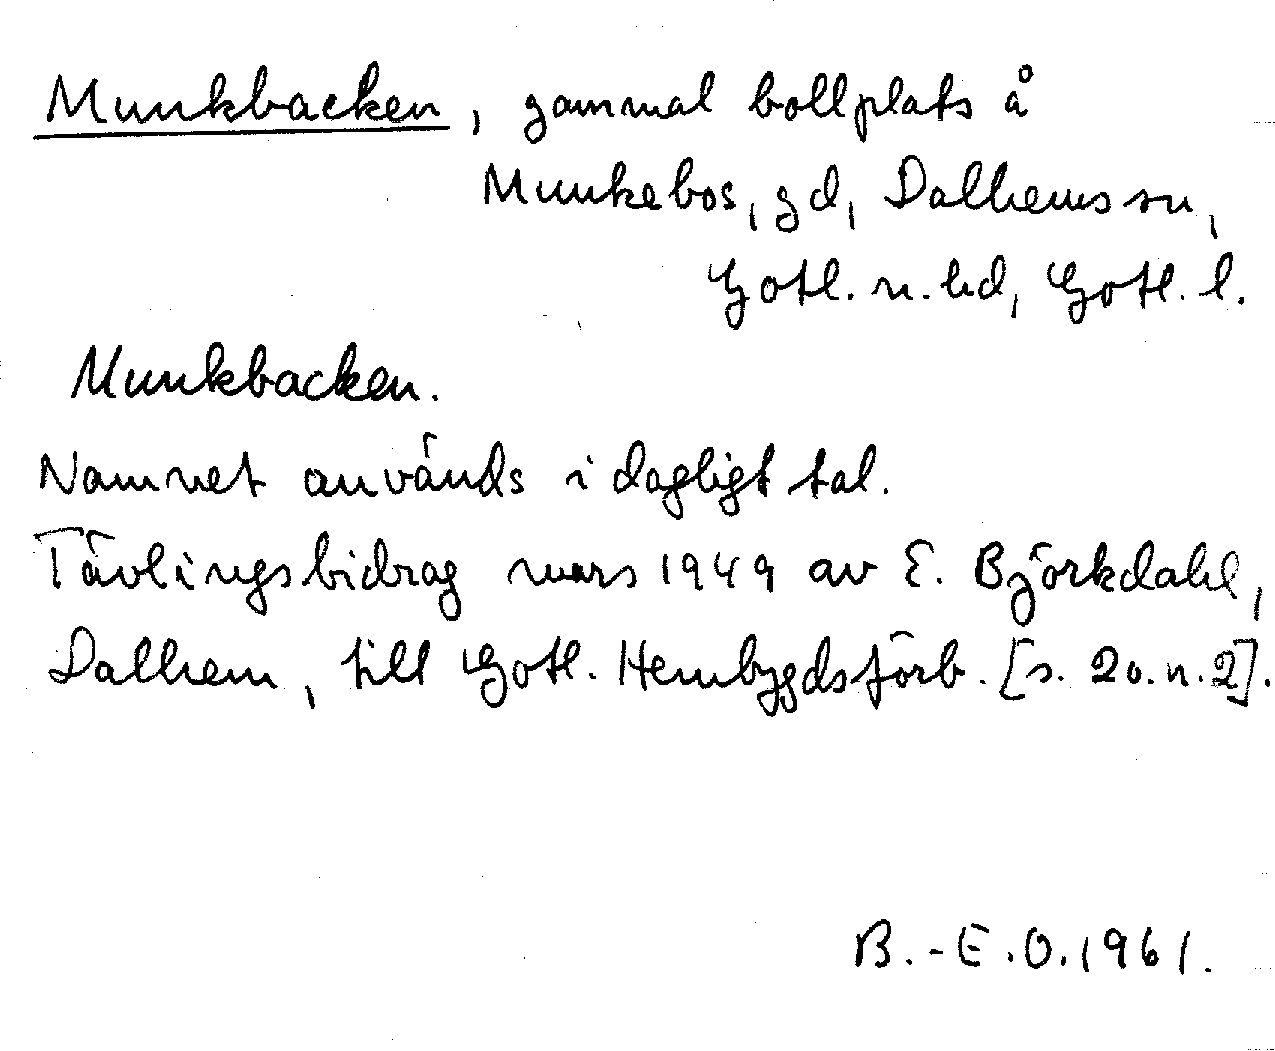 Munkbacken, gammal bollplats å
Munkebos, gd, Dalhems sn,
Gotl. n. hd, Gotl. l.
Munkbacken.
Namnet används i dagligt tal.
Tävlingsbidrag mars 1949 av E. Björkdahl,
Dalhem, till Gotl. Hembygdsförb. [s. 20. n. 2].
B.-E.O. 1961.